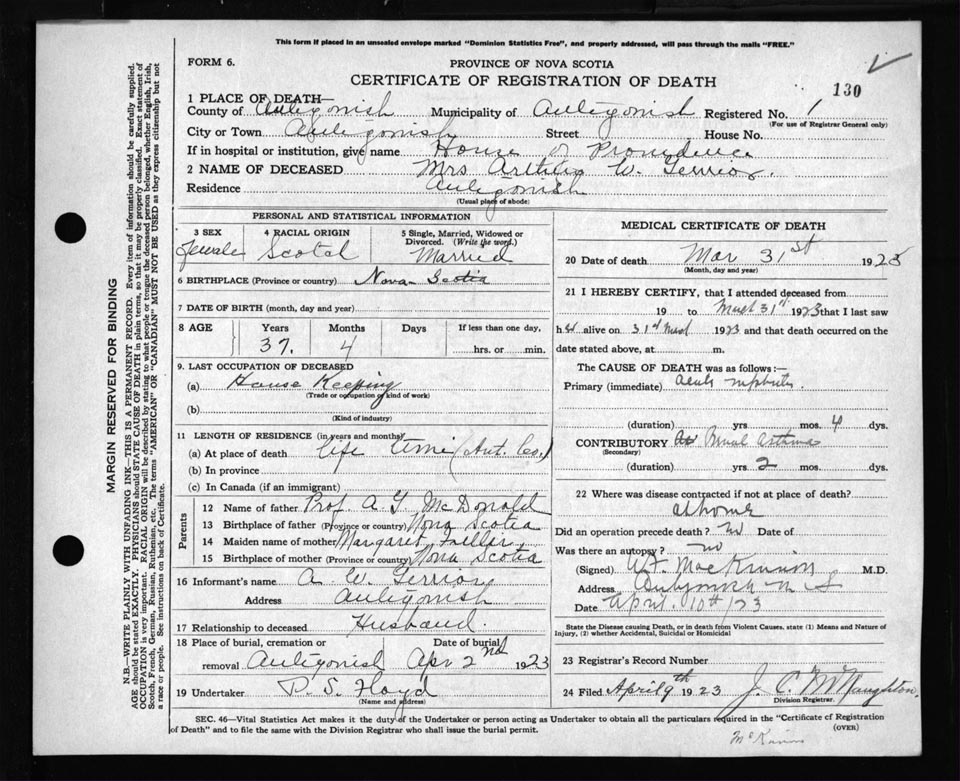 This form if placed in an unsealed envelope marked "Dominion Statistics Free", and properly addressed, will pass through the mails "FREE."
FORM 6.
PROVINCE OF NOVA SCOTIA
CERTIFICATE OF REGISTRATION OF DEATH
130
1 PLACE OF DEATH—
County of Antigonish Municipality of Antigonish Registered No. 1
(For use of Registrar General only)
City or Town Antigonish Street House No.
If in hospital or institution, give name House of Providence
2 NAME OF DECEASED Mrs W.
Residence Antigonish
(Usual place of abode)
PERSONAL AND STATISTICAL INFORMATION
3 SEX 4 RACIAL ORIGIN 5 Single, Married, Widowed or Divorced. (Write the word.)
Female Scotch Married
6 BIRTHPLACE (Province or country) Nova Scotia
7 DATE OF BIRTH (month, day and year)
8 AGE Years Months Days If less than one day,
37. 4 hrs. or min.
9. LAST OCCUPATION OF DECEASED
(a) House Keeping
(Trade or occupation or kind of work)
(b)
(Kind of industry)
11 LENGTH OF RESIDENCE (in years and months)
(a) At place of death life time (Ant. Co.)
(b) In province
(c) In Canada (if an immigrant)
Parents
12 Name of father Prof. A. McDonald
13 Birthplace of father (Province or country) Nova Scotia
14 Maiden name of mother Margaret
15 Birthplace of mother (Province or country) Nova Scotia
16 Informant's name A. W.
Address Antigonish
17 Relationship to deceased Husband.
18 Place of burial, cremation or removal Antigonish Date of burial Apr 2nd 1923
19 Undertaker P. S. Floyd
(Name and address)
MEDICAL CERTIFICATE OF DEATH
20 Date of death Mar 31st 1923
(Month, day and year)
21 I HEREBY CERTIFY, that I attended deceased from
19 to 31st 1923 that I last saw
h alive on 31st 1923 and that death occurred on
date stated above, at m.
The CAUSE OF DEATH was as follows:—
Primary (immediate) acute nephritis.
(duration) yrs. mos. 4 dys.
CONTRIBUTORY asthma
(Secondary)
(duration) yrs. 2 mos. dys.
22 Where was disease contracted if not at place of death?
at home
Did an operation precede death? no Date of
Was there an autopsy? no
(Signed) MacKinnon M.D.
Address Antigonish N. S
Date April 10th/23
State the Disease causing Death, or in death from Violent Causes, state (1) Means and Nature of Injury, (2) whether Accidental, Suicidal or Homicidal
23 Registrar's Record Number
24 Filed April 9th 1923 J. C. McNaughton.
Division Registrar.
SEC. 46—Vital Statistics Act makes it the duty of the Undertaker or person acting as Undertaker to obtain all the particulars required in the "Certificate of Registration
of Death" and to file the same with the Division Registrar who shall issue the burial permit.
(OVER)
MARGIN RESERVED FOR BINDING
N.B.—WRITE PLAINLY WITH UNFADING INK—THIS IS A PERMANENT RECORD. Every item of information should be carefully supplied.
AGE should be stated EXACTLY. PHYSICIANS should STATE CAUSE OF DEATH in plain terms, so that it may be properly classified. Exact statement of
OCCUPATION is very important. RACIAL ORIGIN will be described by stating to what people or tongue the deceased person belonged, whether English, Irish,
Scotch, French, German, Russian, Ruthenian, etc. The terms "AMERICAN" OR "CANADIAN" MUST NOT BE USED as they express citizenship but not
a race or people. See instructions on back of Certificate.